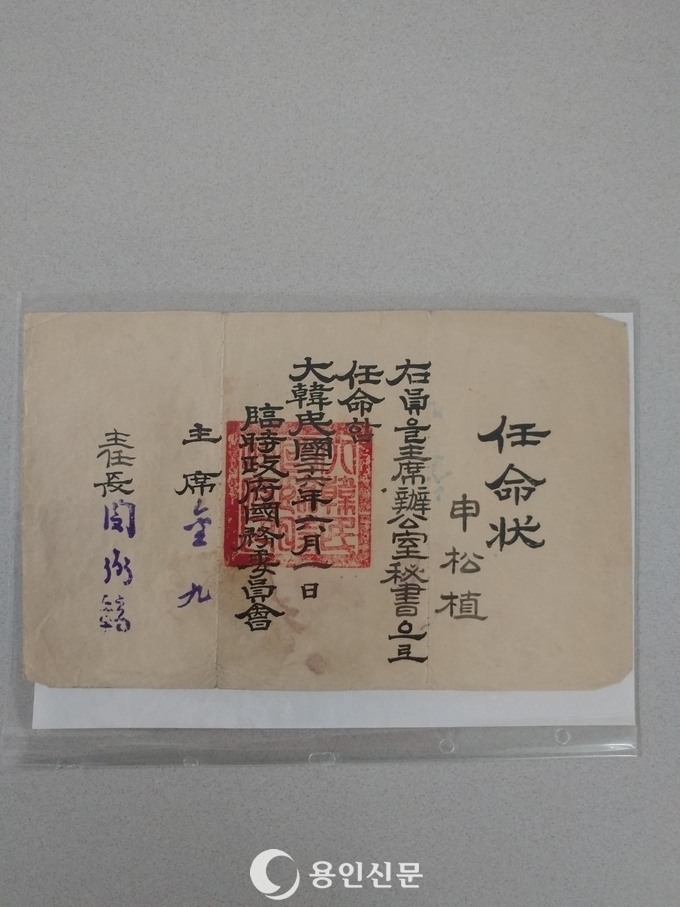 任命狀
申松植
右員을主席辦公室秘書으로
任命함
大韓民國廿六年六月一日
臨時政府國務委員會
主席 金九
主任長 閔弼鎬
용인신문